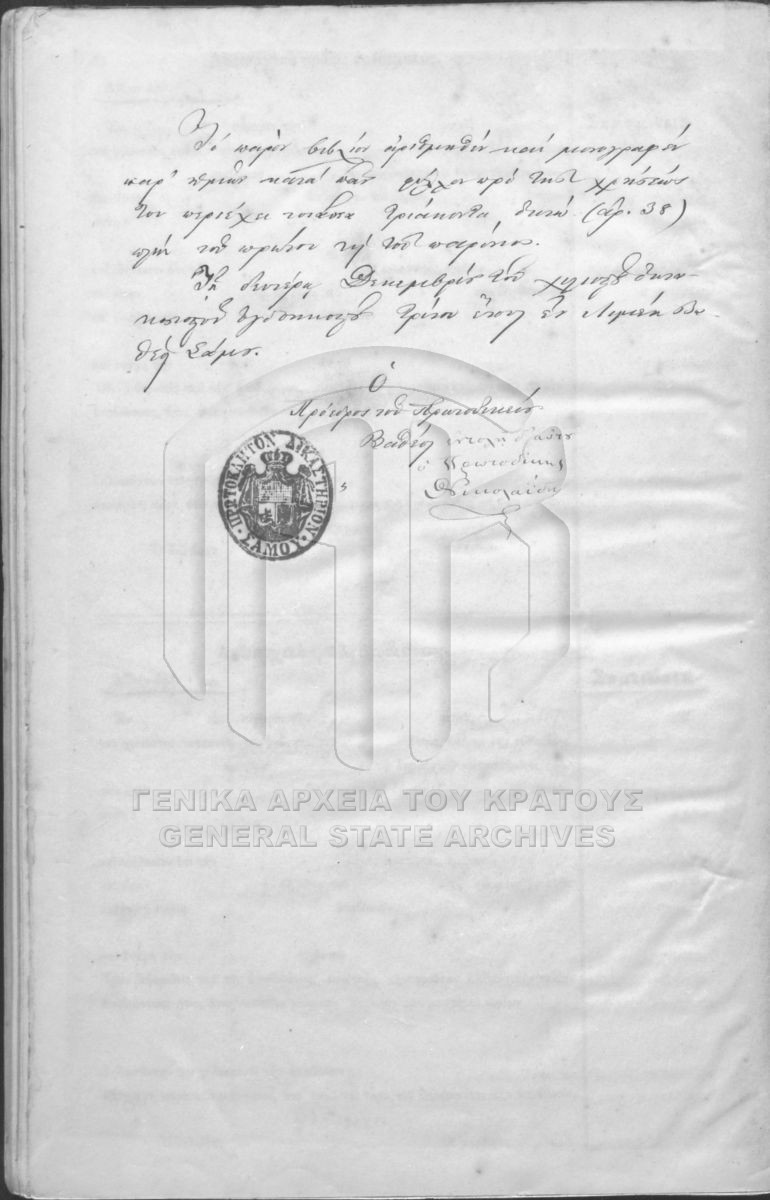 Τό παρόν βιβλίον ἀριθμηθέν καί μονογραφέν
παρ' ἡμῶν κατά πᾶν φύλλον πρό τῆς χρήσεώς
του περιέχει τοιαῦτα τριάκοντα ὀκτώ (ἀρ. 38)
πλήν τοῦ πρώτου καί τοῦ παρόντος.
Τῇ δευτέρᾳ Δεκεμβρίου τοῦ χιλιοστοῦ ὀκτα-
κοσιοστοῦ ὀγδοηκοστοῦ τρίτου ἔτους ἐν Λιμένι Βα-
θέος Σάμου.
Ὁ
Πρόεδρος τοῦ Πρωτοδικείου
Βαθέος ἐντολῇ
ὁ Πρωτοδίκης
Νικολαΐδης
ΠΡΩΤΟΚΛΗΤΟΝ ΔΙΚΑΣΤΗΡΙΟΝ
ΣΑΜΟΥ
ΓΕΝΙΚΑ ΑΡΧΕΙΑ ΤΟΥ ΚΡΑΤΟΥΣ
GENERAL STATE ARCHIVES